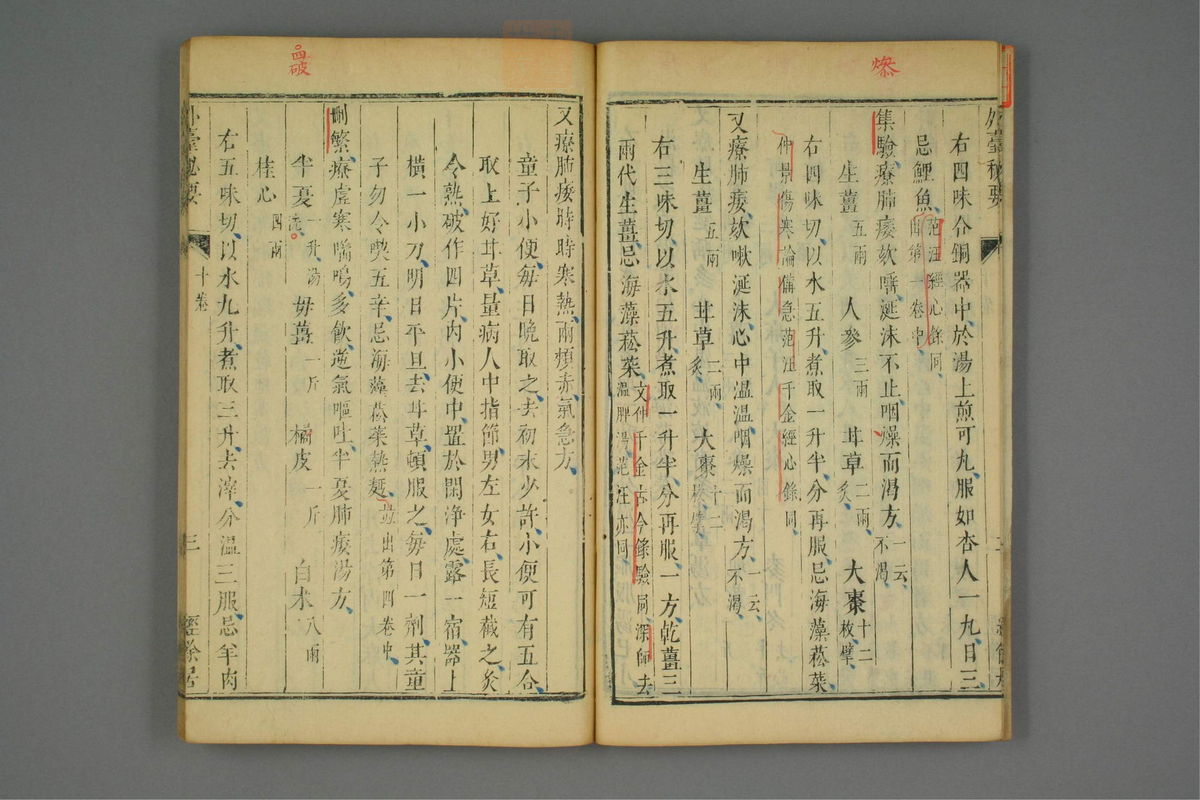 燥
外臺秘要
右四味合銅器中於湯上煎可丸服如杏人一丸日三
忌鯉魚范汪經心錄同出第一卷中
集驗療肺痿欬嗽涎沫不止咽燥而渴方一云不渴
生薑五兩 人參三兩 甘草二兩炙 大棗十二枚擘
右四味切以水五升煮取一升半分再服忌海藻菘菜
仲景傷寒論備急范汪千金經心錄同
又療肺痿欬嗽涎沫心中溫溫咽燥而渴方一云不渴
生薑五兩 甘草二兩炙 大棗十二枚擘
右三味切以水五升煮取一升半分再服一方乾薑三
兩代生薑忌海藻菘菜文仲千金古今錄驗同深師去溫脾湯范汪亦同
四破
又療肺痿時時寒熱兩頰赤氣急方
童子小便每日晚取之去初末少許小便可有五合
取上好甘草量病人中指節男左女右長短截之炙
令熟破作四片內小便中置於閑淨處露一宿器上
橫一小刀明日平旦去甘草頓服之每日一劑其童
子勿令喫五辛忌海藻菘菜熱麵並出第四卷中
刪繁療虛寒喘鳴多飲逆氣嘔吐半夏肺痿湯方
半夏一升湯洗 母薑一斤 橘皮一斤 白朮八兩
桂心四兩
右五味切以水九升煮取三升去滓分溫三服忌羊肉
外臺秘要 十卷 三 經餘居